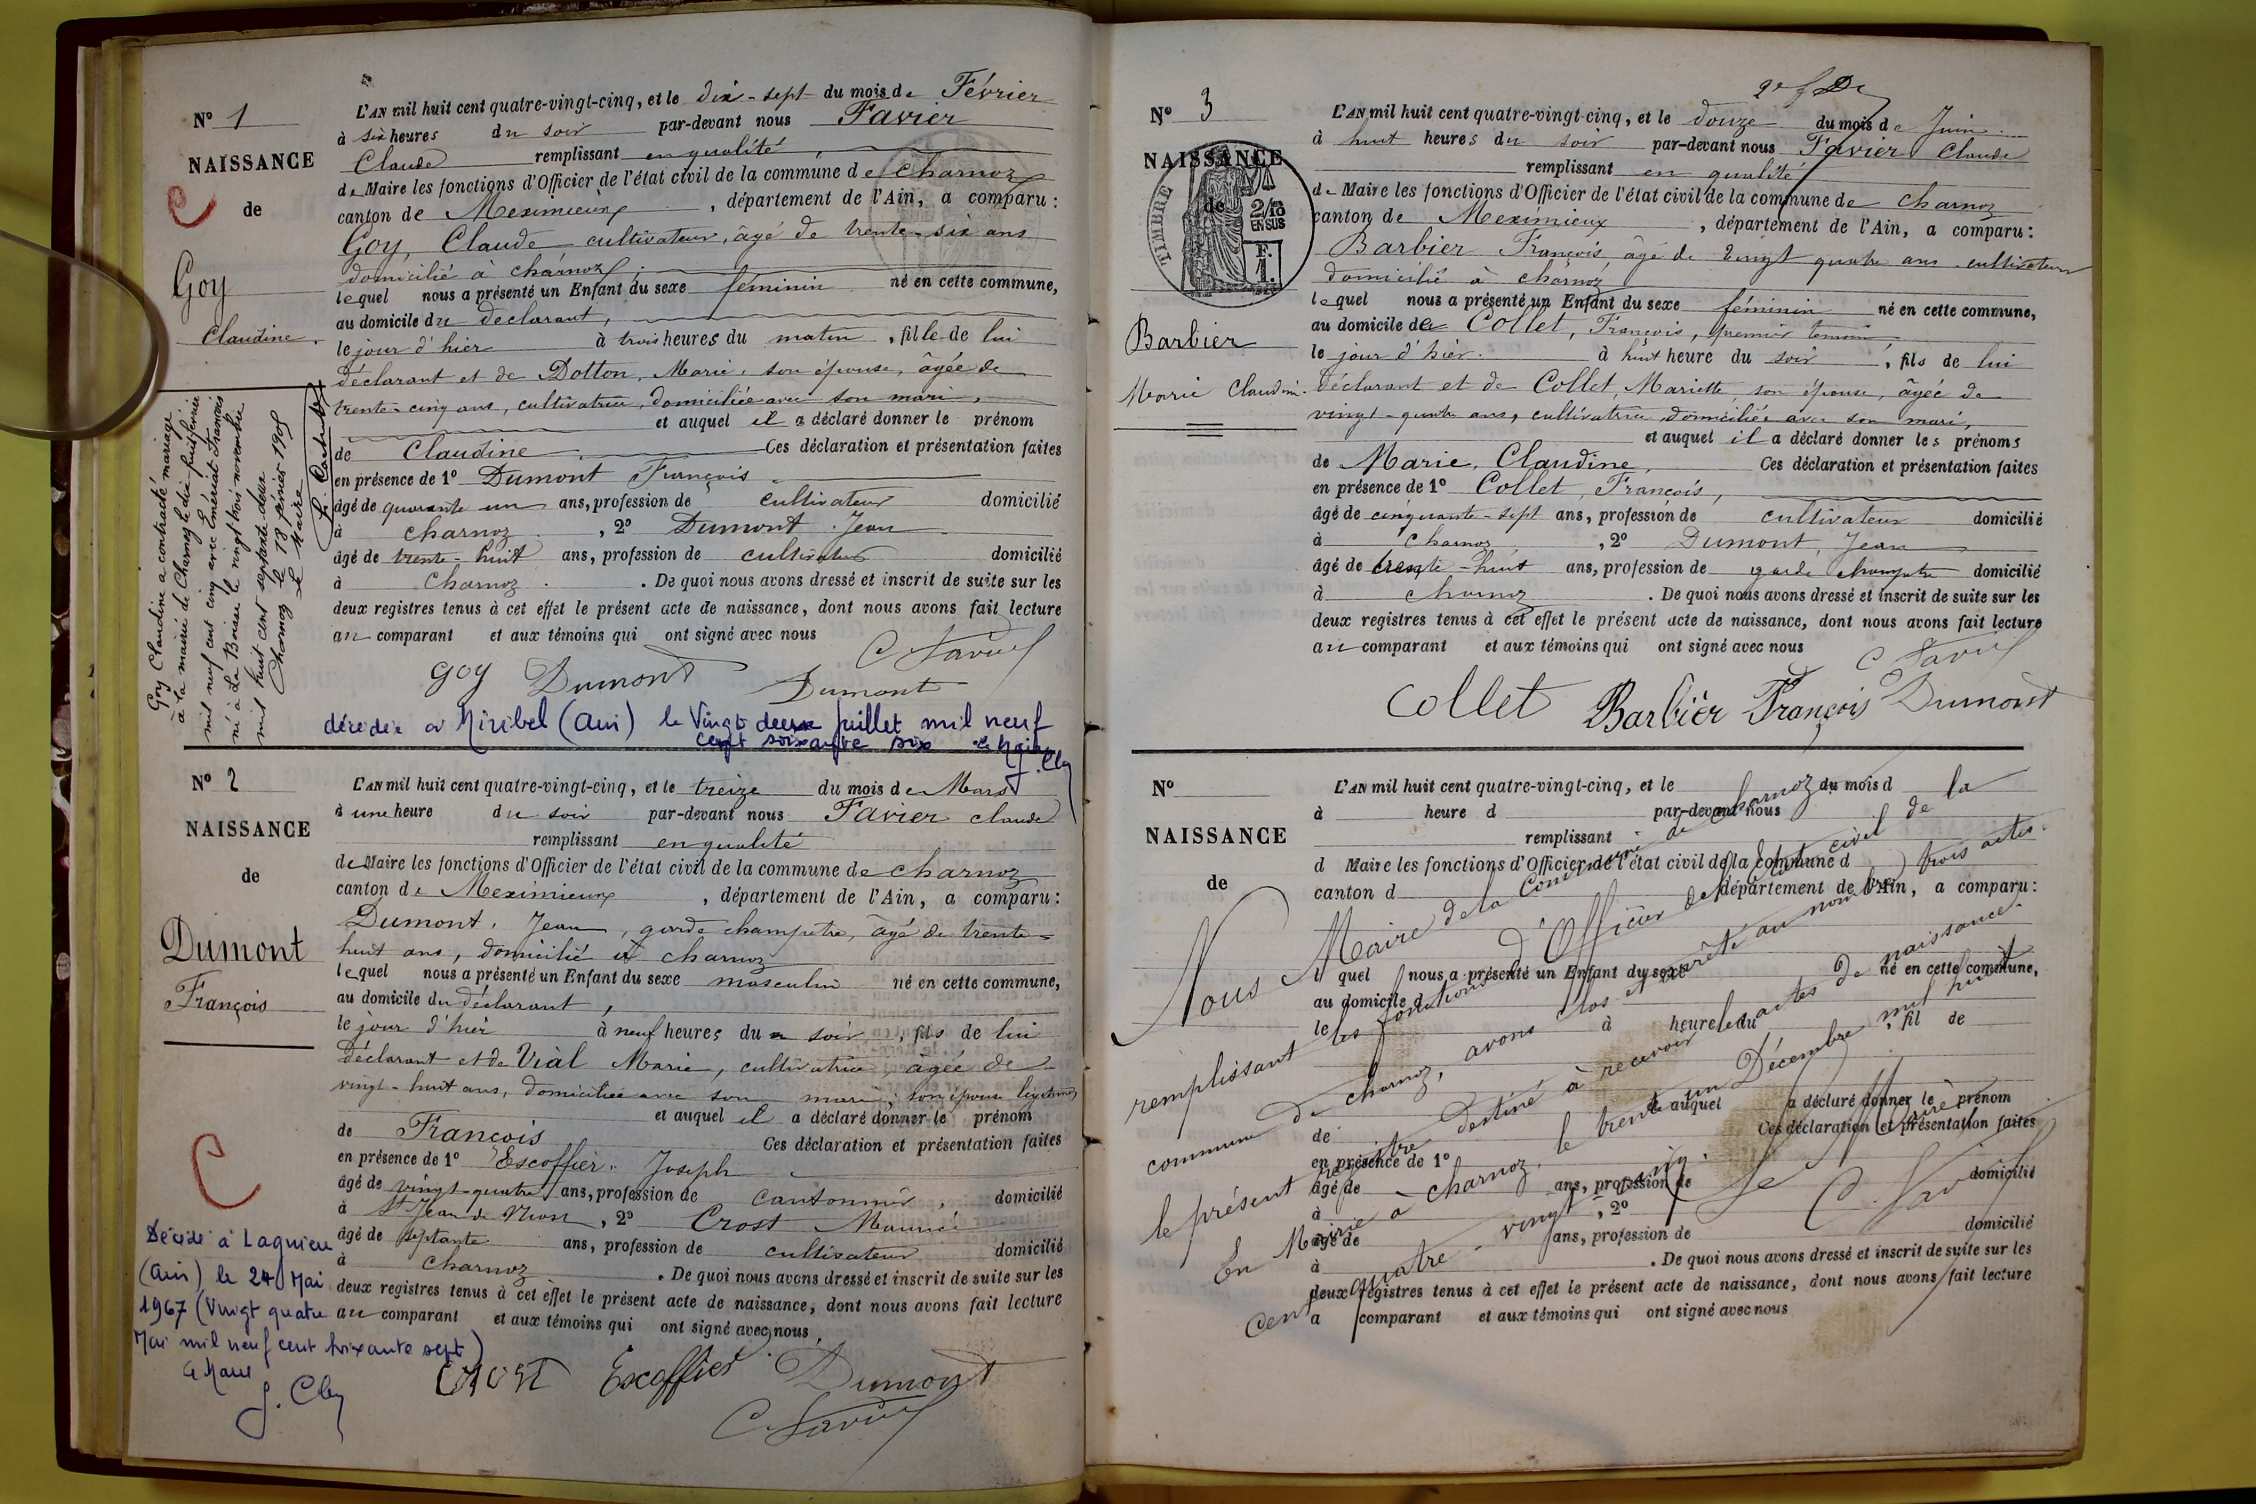 N° 1
NAISSANCE
de
Goy
Claudine.
L'AN mil huit cent quatre-vingt-cinq, et le dix-sept du mois de Février
à six heures du soir par-devant nous Favier
Claude remplissant en qualité
de Maire les fonctions d'Officier de l'état civil de la commune de Charnoz
canton de Meximieux, département de l'Ain, a comparu:
Goy, Claude cultivateur, âgé de trente-six ans
domicilié à charnoz,
lequel nous a présenté un Enfant du sexe féminin né en cette commune,
au domicile du déclarant,
le jour d'hier à trois heures du matin, fille de lui
déclarant et de Dotton, Marie, son épouse, âgée de
trente-cinq ans, cultivatrice, domiciliée avec son mari,
et auquel il a déclaré donner le prénom
de Claudine. Ces déclaration et présentation faites
en présence de 1° Dumont François
âgé de quarante un ans, profession de cultivateur domicilié
à charnoz, 2° Dumont Jean
âgé de trente-huit ans, profession de cultivateur domicilié
à Charnoz. De quoi nous avons dressé et inscrit de suite sur les
deux registres tenus à cet effet le présent acte de naissance, dont nous avons fait lecture
au comparant et aux témoins qui ont signé avec nous
C Favier
Goy Dumont Dumont
Goy Claudine a contracté mariage
à la mairie de Charnoz le dix huit février
mil neuf cent cinq avec Émériat François
né à La Boisse le vingt trois novembre
mil huit cent septante deux
Charnoz le 18 février 1905
Le Maire
décédée à Miribel (Ain) le Vingt deux juillet mil neuf
cent soixante six le Maire
N° 2
NAISSANCE
de
Dumont
François
L'AN mil huit cent quatre-vingt-cinq, et le treize du mois de Mars
à une heure du soir par-devant nous Favier Claude
remplissant en qualité
de Maire les fonctions d'Officier de l'état civil de la commune de charnoz
canton de Meximieux, département de l'Ain, a comparu:
Dumont, Jean, garde champêtre, âgé de trente-
huit ans, domicilié à charnoz
lequel nous a présenté un Enfant du sexe masculin né en cette commune,
au domicile du déclarant,
le jour d'hier à neuf heures du soir, fils de lui
déclarant et de Vial Marie, cultivatrice, âgée de
vingt-huit ans, domiciliée avec son mari, son épouse légitime
et auquel il a déclaré donner le prénom
de François Ces déclaration et présentation faites
en présence de 1° Escoffier Joseph
âgé de vingt-quatre ans, profession de cantonnier, domicilié
à St Jean de Niost, 2° Crost Maurice
âgé de septante ans, profession de cultivateur domicilié
à Charnoz. De quoi nous avons dressé et inscrit de suite sur les
deux registres tenus à cet effet le présent acte de naissance, dont nous avons fait lecture
au comparant et aux témoins qui ont signé avec nous,
Crost Escoffier Dumont
C Favier
Décédé à Lagnieu
(Ain) le 24 Mai
1967 (Vingt quatre
Mai mil neuf cent soixante sept)
le Maire
N° 3
NAISSANCE
de
TIMBRE
2/10
EN SUS
F.
1.
Barbier
Marie Claudine.
L'AN mil huit cent quatre-vingt-cinq, et le douze du mois de Juin
à huit heures du soir par-devant nous Favier Claude
remplissant en qualité
de Maire les fonctions d'Officier de l'état civil de la commune de charnoz
canton de Meximieux, département de l'Ain, a comparu:
Barbier François âgé de vingt quatre ans cultivateur
domicilié à charnoz
lequel nous a présenté un Enfant du sexe féminin né en cette commune,
au domicile de Collet, François, premier témoin
le jour d'hier. à huit heure du soir, fils de lui
déclarant et de Collet, Mariette, son épouse, âgée de
vingt-quatre ans, cultivatrice domiciliée avec son mari,
et auquel il a déclaré donner les prénoms
de Marie, Claudine, Ces déclaration et présentation faites
en présence de 1° Collet, François,
âgé de cinquante-sept ans, profession de cultivateur domicilié
à Charnoz, 2° Dumont, Jean
âgé de trente-huit ans, profession de garde champêtre domicilié
à charnoz. De quoi nous avons dressé et inscrit de suite sur les
deux registres tenus à cet effet le présent acte de naissance, dont nous avons fait lecture
au comparant et aux témoins qui ont signé avec nous
C Favier
Collet Barbier François Dumont
N°
NAISSANCE
de
L'AN mil huit cent quatre-vingt-cinq, et le du mois d
à heure d par-devant nous
remplissant
d Maire les fonctions d'Officier de l'état civil de la commune d
canton d département de l'Ain, a comparu:
l quel nous a présenté un Enfant du sexe né en cette commune,
au domicile d
le à heure du, fil de
et auquel a déclaré donner le prénom
de Ces déclaration et présentation faites
en présence de 1°
âgé de ans, profession de domicilié
à, 2°
âgé de ans, profession de domicilié
à. De quoi nous avons dressé et inscrit de suite sur les
deux registres tenus à cet effet le présent acte de naissance, dont nous avons fait lecture
a comparant et aux témoins qui ont signé avec nous
Nous Maire de la Commune de Charnoz
remplissant les fonctions d'Officier de l'état civil de la
commune de charnoz, avons clos et arrêté au nombre trois actes
le présent registre destiné à recevoir les actes de naissance.
En Mairie à charnoz, le trente un Décembre mil huit
cent quatre-vingt-cinq.
Le Maire
C. Favier